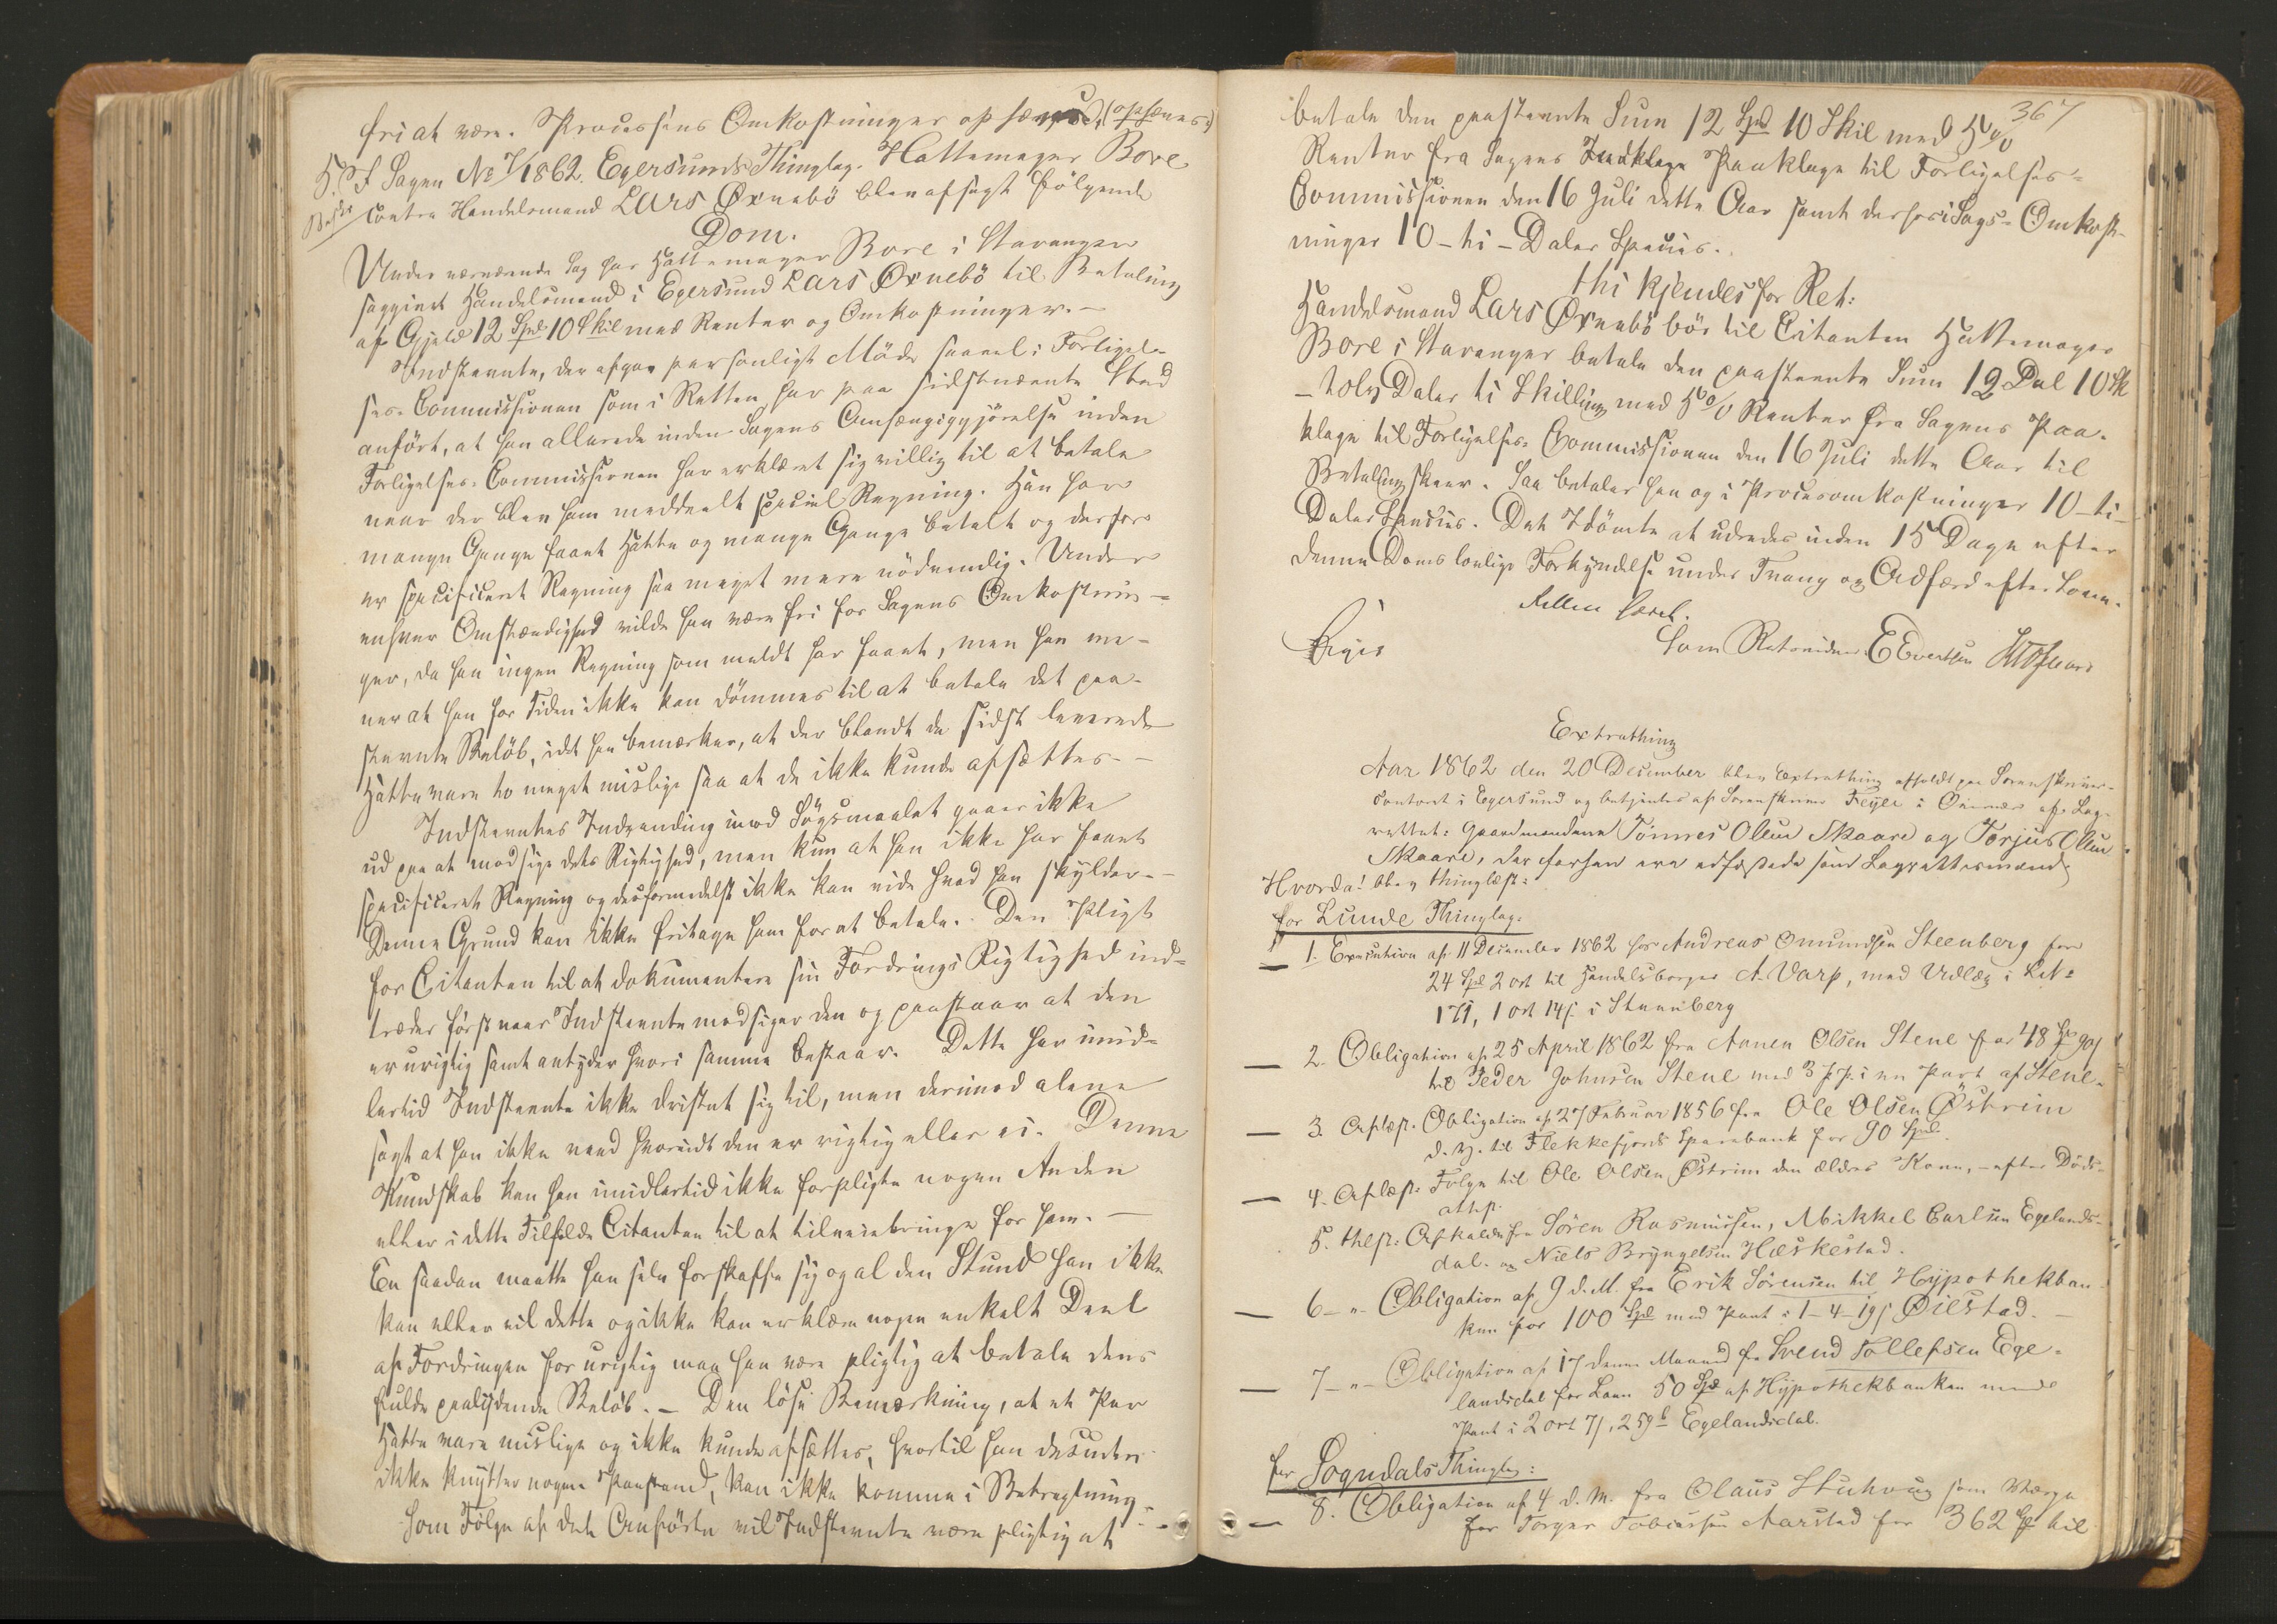 fri at være. Processens Omkostninger ophæves (ophæves)
5. I Sagen No 7/1862. Egersunds Thinglag. Hattemager Bore
contra Handelsmand Lars Øxnebö blev afsagt følgende
Dom.
Under nærværende Sag har Hattemager Bore i Stavanger
saggivet Handelsmand i Egersund Lars Øxnebö til Betaling
af Gjeld 12 Spd 10 Skil med Renter og Omkostninger. –
Indstevnte, der afgav personligt Möde saavel i Forligel-
ses-Commissionen som i Retten har paa sidstnævnte Sted
anført, at han allerede inden Sagens Anhængiggjörelse inden
Forligelses-Commissionen har erklæret sig villig til at betale
naar der blev ham meddeelt speciel Regning. Han har
mange Gange faaet Hatte og mange Gange betalt og derfor
er specificeret Regning saa meget mere nödvendig. Under
enhver Omstændighed vilde han være fri for Sagens Omkostnin-
ger, da han ingen Regning som meldt har faaet, men han me-
ner at han for Tiden ikke kan dömmes til at betale det paa-
stevnte Belöb, idet han bemærker, at der blandt de sidst leverede
Hatte vare to meget mislige saa at de ikke kunde afsættes. –
Indstevntes Indvending imod Sögsmaalet gaaer ikke
ud paa at modsige dets Rigtighed, men kun at han ikke har faaet
specificeret Regning og desformedelst ikke kan vide hvad han skylder. –
Denne Grund kan ikke fritage ham for at betale. Den Pligt
for Citanten til at dokumentere sin Fordrings Rigtighed ind-
træder først naar Indstevnte modsiger den og paastaar at den
er urigtig samt antyder hvori samme bestaar. Dette har imid-
lertid Indstevnte ikke dristet sig til, men derimod alene
sagt at han ikke veed hvorvidt den er rigtig eller ei. Denne
Kundskab kan han imidlertid ikke forpligte nogen Anden
eller i dette Tilfælde Citanten til at tilveiebringe for ham. –
En saadan maatte han selv forskaffe sig og al den Stund han ikke
kan eller vil dette og ikke kan erklære nogen enkelt Deel
af Fordringen for urigtig maa han være pligtig at betale dens
fulde paalydende Belöb. – Den löse Bemærkning, at et Par
Hatte vare mislige og ikke kunde afsættes, hvortil han desuden
ikke knytter nogen Paastand, kan ikke komme i Betragtning. –
Som Fölge af det Anförte vil Indstevnte være pligtig at
367
betale den paastevnte Sum 12 Spd 10 Skil med 5 %
Renter fra Sagens Paaklage til Forligelses-
Commissionen den 16 Juli dette Aar samt derhos i Sags-Omkost-
ninger 10 – ti – Daler Species.
Thi kjendes for Ret:
Handelsmand Lars Øxnebö bör til Citanten Hattemager
Bore i Stavanger betale den paastevnte Sum 12 Dal 10 Sk
– tolv Daler ti Skilling med 5 % Renter fra Sagens Paa-
klage til Forligelses-Commissionen den 16 Juli dette Aar til
Betaling skeer. Saa betaler han og i Procesomkostninger 10 – ti –
Daler Species. Det Idömte at udredes inden 15 Dage efter
denne Doms lovlige Forkyndelse under Tvang og Adfærd efter Loven.
Retten hævet.
Feyer
Som Retsvidner E Evertsen
Extrathing
Aar 1862 den 20 December blev Extrathing afholdt paa Sorenskriver-
contoret i Egersund og betjentes af Sorenskriver Feyer i Overvær af Lag-
rettet: Gaardmændene Tönnes Olsen Skaare og Torjus Olsen
Skaare, der forhen ere edfæstede som Lagrettesmænd
Hvorda! blev thinglæst:
for Lunde Thinglag:
1. Execution af 11 December 1862 hos Andreas Omundsen Steenberg for
24 Spd 2 ort til Handelsborger A. Varp, med Udlæg i
171, 1 ort 14 s i Steenberg
2. Obligation af 25 April 1862 fra Anen Olsen Stene for 48
til Peder Johnsen Stene med 3 p. P. i en Part af Stene.
3. Aflæst. Obligation af 27 Februar 1856 fra Ole Olsen Östrem
d. y. til Flekkefjords Sparebank for 90 Spd.
4. Aflæst. Fölge til Ole Olsen Östrem den ældres Kone, – efter Döds-
attest.
5. thlst: Afkald fra Sören Rasmussen, Mikkel Carlsen Egelands-
dal og Niels Bryngelsen Hæskestad.
6 – " – Obligation af 9 d. M. fra Erik Sörensen til Hypothekban-
ken for 100 Spd med Pant i 1 – 4 – 19 s Øilestad. –
7 – " – Obligation af 17 denne Maaned fra Svend Tollefsen Ege-
landsdal for Laan 50 Spd af Hypothekbanken med
Pant i 2 ort 7 s, 259 Egelandsdal.
for Sogndals Thinglag:
8. Obligation af 4 d. M. fra Olaus Stuhoug som Værge
for Torger Tobiassen Aarstad for 362 Sp til